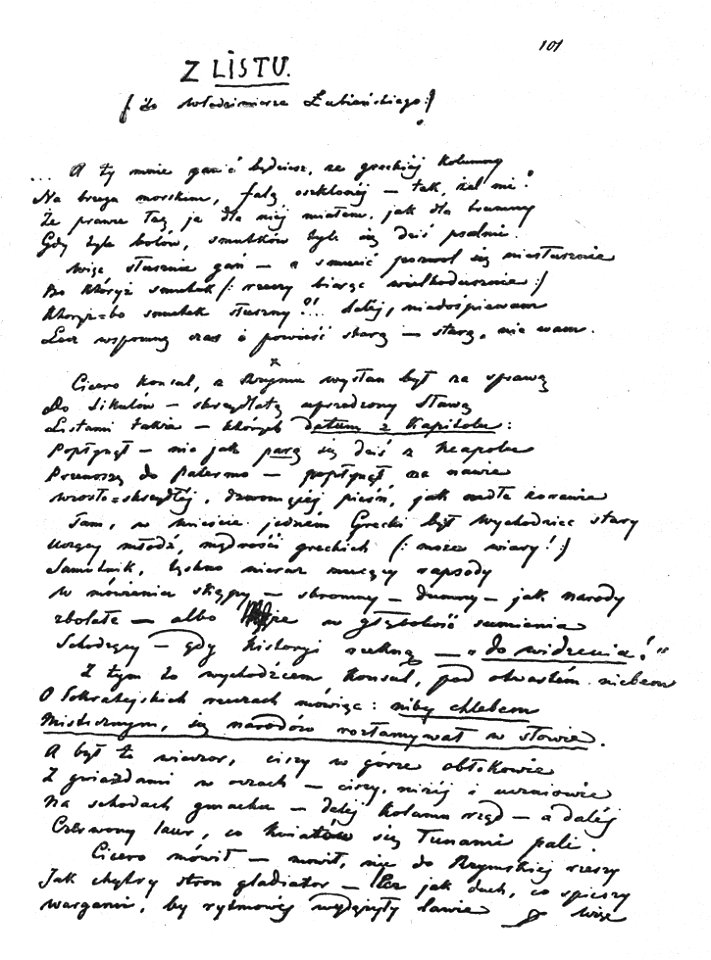 101
Z LISTU.
(do Włodzimierza Łubieńskiego:)
... A ty mnie ganić będziesz, że greckiéj kolumny
Na brzegu morskim, falą oszklonéj — tak, żal mi!
Że prawie łzę ja dla niéj miałem, jak dla trumny
Gdy tyle bolów, smutków tyle się dziś psalmi.
Więc słusznie gań — a smucić pozwól się niesłusznie
Bo któryż smutek (: rzeczy biorąc wielkodusznie :)
Któryż bo smutek słuszny?!.. daléj, niedośpiewam
Lecz wspomnę czas i powieść starą — starą, nie wam.
×
Cicero Konsul, z Rzymu wysłan był za sprawą
Do Sikulów — skrzydlatą uprzedzony sławą
Listami także — których datum z Kapitolu:
Popłynął — nie jak parą się dziś z Neapolu
Przenoszą do Palermo — popłynął na nawie
wiosło=skrzydłéj, dzwoniącéj pieśń, jak mdłe żórawie
Tam, w mieście jedném Grecki był wychodziec stary
Uczący młodź, mądrości greckich (: możes wiary! :)
Samotnik, tęskno nieraz nucący rapsody
w mówieniu skąpy — skromny — dumny — jak narody
zbolałe — albo w głębokość sumienia
Schodzący — gdy historyi rzekną — "do widzenia!"
Z tym to wychodźcem Konsul, pod otwartém niebem
O Sokratejskich rzeczach mówiąc: niby chlebem
Misticznym, się narodów rozłamywał w słowie.
A był to wieczor, ciszy w górze obłokowie
Z gwiazdami w oczach — ciszy, niżéj i uczniowie
Na schodach gmachu — daléj kolumn rząd — a daléj
Czerwony laur, co kwiatów się łunami pali.
Cicero mówił — mówił, nie do Rzymskiéj rzeszy
Jak chytry stron gladiator — lecz jak duch, co spieszy
wargami, by rytmowéj wydążyły ławie
więc